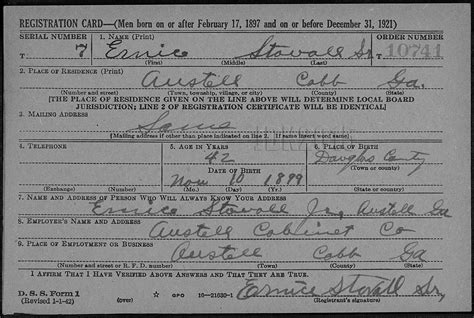 REGISTRATION CARD—(Men born on or after February 17, 1897 and on or before December 31, 1921)
SERIAL NUMBER 1. NAME (Print) ORDER NUMBER
T 7 Ernice Stovall Sr. 10741
(First) (Middle) (Last)
2. PLACE OF RESIDENCE (Print)
Austell Cobb Ga.
(Number and street) (Town, township, village, or city) (County) (State)
[THE PLACE OF RESIDENCE GIVEN ON THE LINE ABOVE WILL DETERMINE LOCAL BOARD
JURISDICTION; LINE 2 OF REGISTRATION CERTIFICATE WILL BE IDENTICAL]
3. MAILING ADDRESS
Same
[Mailing address if other than place indicated on line 2. If same insert word same]
4. TELEPHONE 5. AGE IN YEARS 6. PLACE OF BIRTH
42 Douglas County
DATE OF BIRTH (Town or county)
Nov 10 1899
(Exchange) (Number) (Mo.) (Day) (Yr.) (State or country)
7. NAME AND ADDRESS OF PERSON WHO WILL ALWAYS KNOW YOUR ADDRESS
Ernice Stovall Jr, Austell Ga
8. EMPLOYER'S NAME AND ADDRESS
Austell Cabinet Co
9. PLACE OF EMPLOYMENT OR BUSINESS
Austell Cobb Ga
(Number and street or R. F. D. number) (Town) (County) (State)
I AFFIRM THAT I HAVE VERIFIED ABOVE ANSWERS AND THAT THEY ARE TRUE.
D. S. S. Form 1
(Revised 1-1-42) (over) ☆ GPO 16—21630-1 Ernice Stovall Sr.
(Registrant's signature)